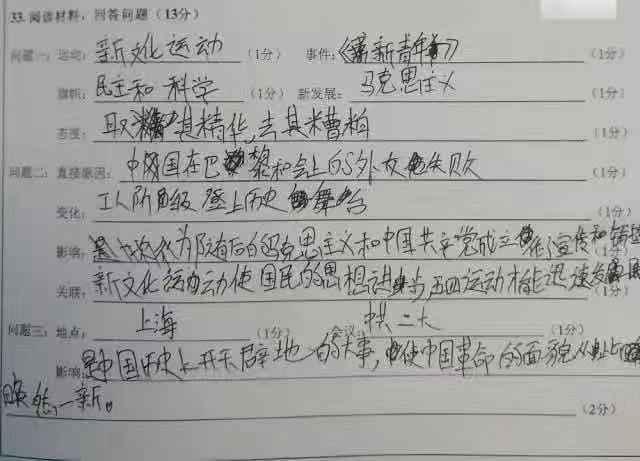 33. 阅读材料，回答问题（13分）
问题一：运动：新文化运动（1分） 事件：《新青年》（1分）
旗帜：民主和科学（1分） 新发展：马克思主义（1分）
态度：取其精华，去其糟柏（1分）
问题二：直接原因：中国在巴黎和会上的外交失败（1分）
变化：工人阶级登上历史舞台（1分）
影响：为随后的马克思主义和中国共产党成立作了宣传和
关联：新文化运动使国民的思想进步，五四运动才能迅速发展（1分）
问题三：地点：上海（1分） 会议：中共二大（1分）
影响：是中国历史上开天辟地的大事，使中国革命的面貌从此
焕然一新。（2分）